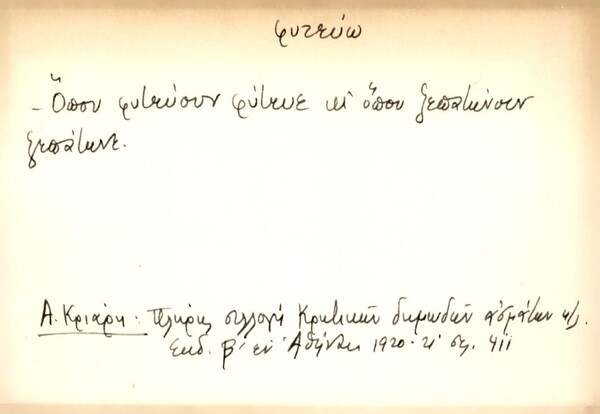 φυτεύω
- Ὅπου φυτεύουν φύτευε κι ὅπου ξεπατώνουν
ξεπάτωνε.
Α. Κριάρη: Πλήρης συλλογή Κρητικῶν δημωδῶν ἀσμάτων κ.λ.
Ἐκδ. β' ἐν Ἀθήναις 1920 - 21 σ. 411